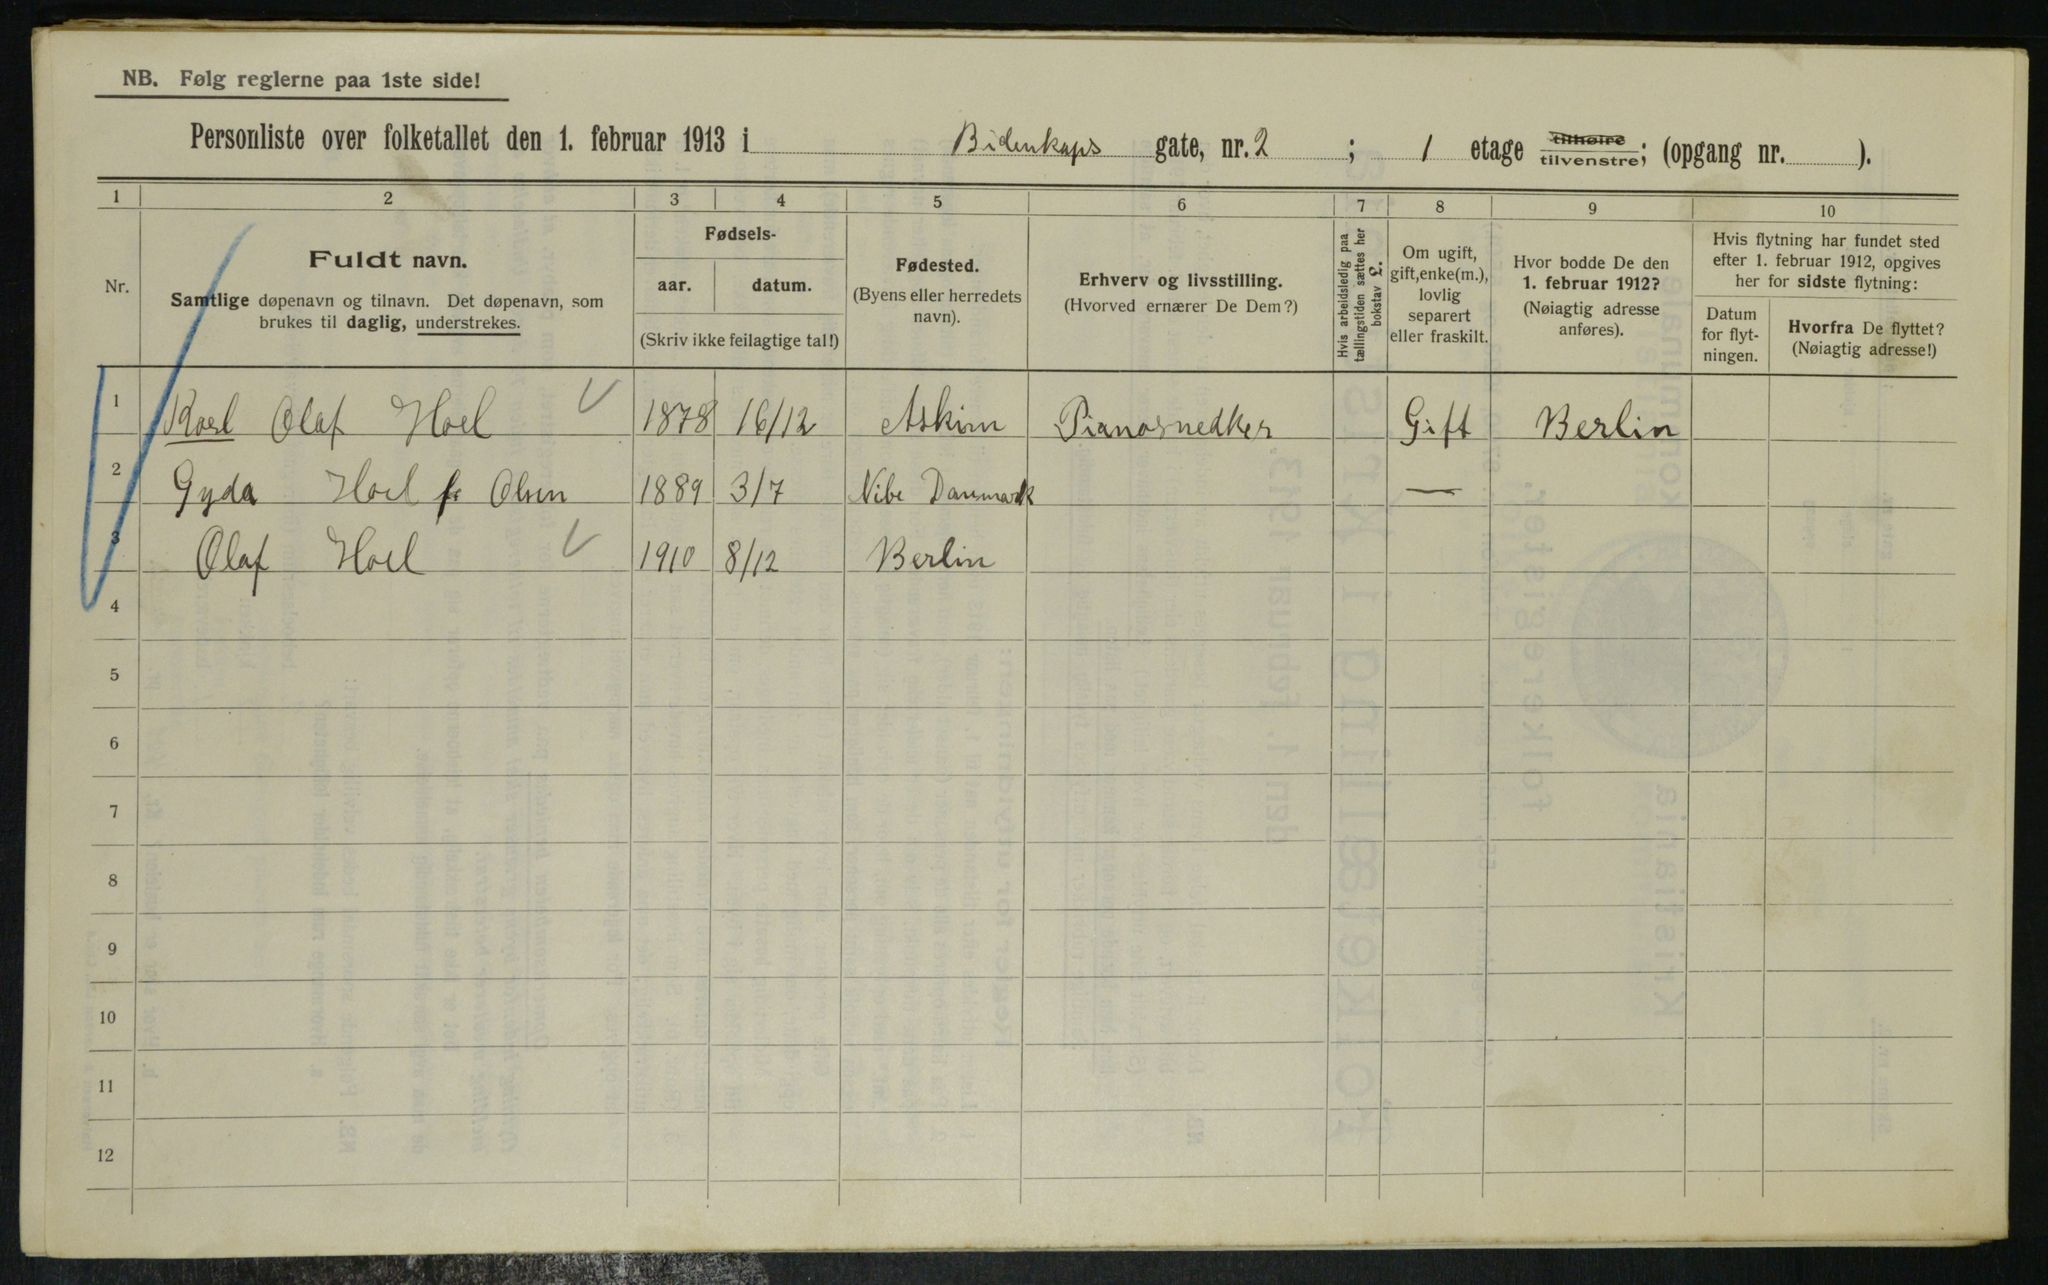 NB. Følg reglerne paa 1ste side!
Personliste over folketallet den 1. februar 1913 i Bidenkaps gate, nr. 2 ; 1 etage tilhøire tilvenstre; (opgang nr. ).
1 2 3 4 5 6 7 8 9 10
Nr.
Fuldt navn.
Samtlige døpenavn og tilnavn. Det døpenavn, som
brukes til daglig, understrekes.
Fødsels-
aar. datum.
(Skriv ikke feilagtige tal!)
Fødested.
(Byens eller herredets
navn).
Erhverv og livsstilling.
(Hvorved ernærer De Dem?)
Hvis arbeidsledig paa
tællingstiden sættes her
bokstav L.
Om ugift,
gift, enke(m.),
lovlig
separert
eller fraskilt.
Hvor bodde De den
1. februar 1912?
(Nøiagtig adresse
anføres).
Hvis flytning har fundet sted
efter 1. februar 1912, opgives
her for sidste flytning:
Datum
for flyt-
ningen.
Hvorfra De flyttet?
(Nøiagtig adresse!)
1 Karl Olaf Hoel 1878 16/12 Askim Pianosnedker Gift Berlin
2 Gyda Hoel f Olsen 1889 3/7 Nibe Danmark —
3 Olaf Hoel 1910 8/12 Berlin
4
5
6
7
8
9
10
11
12